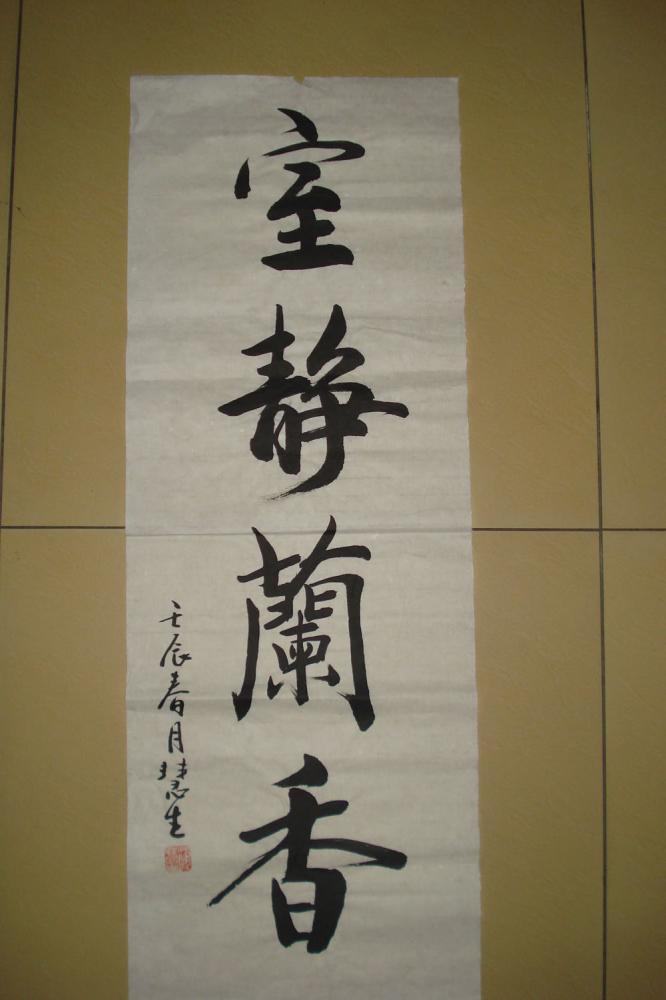 室靜蘭香
壬辰春月慧生